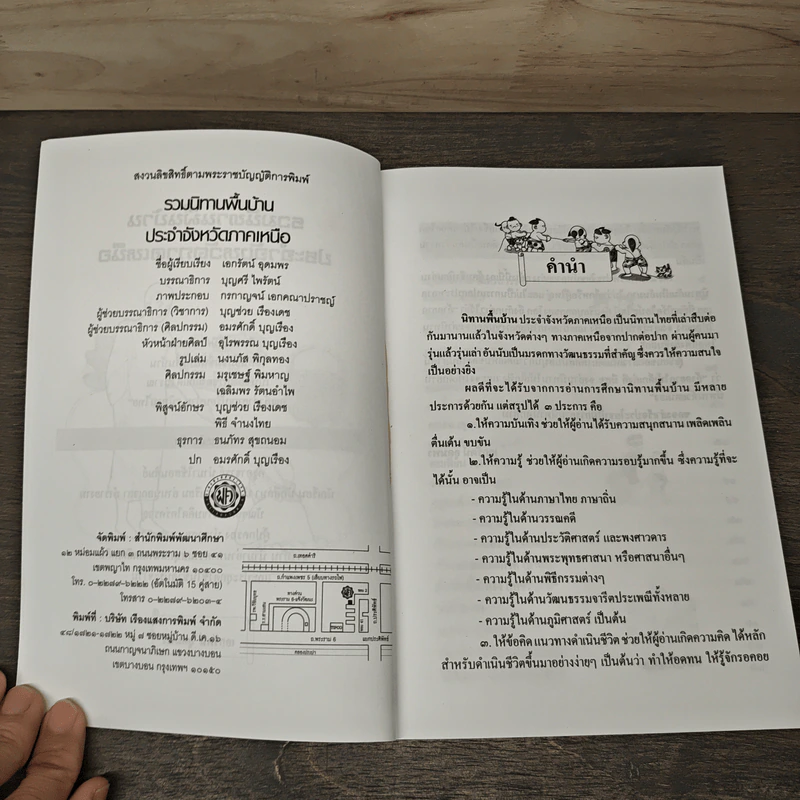 สงวนลิขสิทธิ์ตามพระราชบัญญัติการพิมพ์
รวมนิทานพื้นบ้าน
ประจำจังหวัดภาคเหนือ
ชื่อผู้เรียบเรียง เอกรัตน์ อุดมพร
บรรณาธิการ บุญศรี ไพรัตน์
ภาพประกอบ กรกาญจน์ เอกคณาปราชญ์
ผู้ช่วยบรรณาธิการ (วิชาการ) บุญช่วย เรืองเดช
ผู้ช่วยบรรณาธิการ (ศิลปกรรม) อมรศักดิ์ บุญเรือง
หัวหน้าฝ่ายศิลป์ อุไรพรรณ บุญเรือง
รูปเล่ม นงนภัส พิกุลทอง
ศิลปกรรม มรุเชษฐ์ พิมหาญ
เฉลิมพร รัตนอำไพ
พิสูจน์อักษร บุญช่วย เรืองเดช
พิธี จำนงไทย
ธุรการ ธนภัทร สุขถนอม
ปก อมรศักดิ์ บุญเรือง
จัดพิมพ์ : สำนักพิมพ์พัฒนาศึกษา
๑๒ หม่อมแผ้ว แยก ๓ ถนนพระราม ๖ ซอย ๔๑
เขตพญาไท กรุงเทพมหานคร ๑๐๔๐๐
โทร. ๐-๒๒๗๙-๖๒๒๒ (อัตโนมัติ 15 คู่สาย)
โทรสาร ๐-๒๒๗๙-๖๒๐๓-๔
พิมพ์ที่ : บริษัท เรืองแสงการพิมพ์ จำกัด
๔๘/๑๗๒๑-๑๗๒๒ หมู่ ๗ ซอยหมู่บ้าน ดี.เค.๑๖
ถนนกาญจนาภิเษก แขวงบางบอน
เขตบางบอน กรุงเทพฯ ๑๐๑๕๐
ถ.พระราม 6
คำนำ
นิทานพื้นบ้าน ประจำจังหวัดภาคเหนือ เป็นนิทานไทยที่เล่าสืบต่อ
กันมานานแล้วในจังหวัดต่างๆ ทางภาคเหนือจากปากต่อปาก ผ่านผู้คนมา
รุ่นแล้วรุ่นเล่า อันนับเป็นมรดกทางวัฒนธรรมที่สำคัญ ซึ่งควรให้ความสนใจ
เป็นอย่างยิ่ง
ผลดีที่จะได้รับจากการอ่านการศึกษานิทานพื้นบ้าน มีหลาย
ประการด้วยกัน แต่สรุปได้ ๓ ประการ คือ
๑.ให้ความบันเทิง ช่วยให้ผู้อ่านได้รับความสนุกสนาน เพลิดเพลิน
ตื่นเต้น ขบขัน
๒.ให้ความรู้ ช่วยให้ผู้อ่านเกิดความรอบรู้มากขึ้น ซึ่งความรู้ที่จะ
ได้นั้น อาจเป็น
- ความรู้ในด้านภาษาไทย ภาษาถิ่น
- ความรู้ในด้านวรรณคดี
- ความรู้ในด้านประวัติศาสตร์ และพงศาวดาร
- ความรู้ในด้านพระพุทธศาสนา หรือศาสนาอื่นๆ
- ความรู้ในด้านพิธีกรรมต่างๆ
- ความรู้ในด้านวัฒนธรรมจารีตประเพณีทั้งหลาย
- ความรู้ในด้านภูมิศาสตร์ เป็นต้น
๓. ให้ข้อคิด แนวทางดำเนินชีวิต ช่วยให้ผู้อ่านเกิดความคิด ได้หลัก
สำหรับดำเนินชีวิตขึ้นมาอย่างง่ายๆ เป็นต้นว่า ทำให้อดทน ให้รู้จักรอคอย